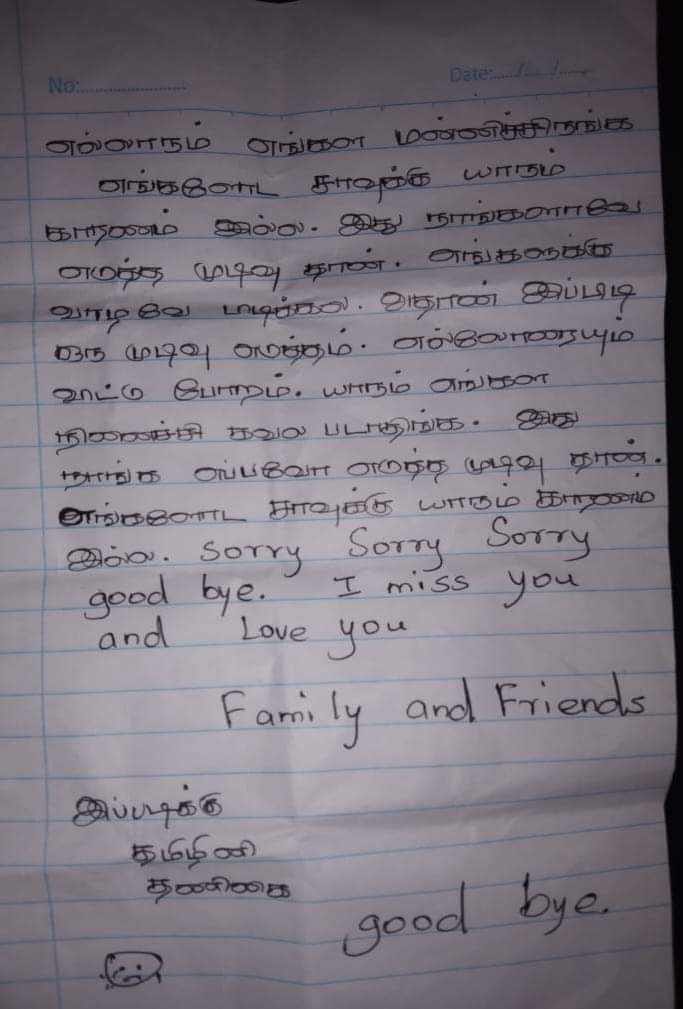 No:
Date: / /
எல்லாரும் எங்கள மன்னிச்சிருங்க
எங்களோட சாவுக்கு யாரும்
காரணம் இல்ல. இது நாங்களாவே
எடுத்த முடிவு தான். எங்களுக்கு
வாழவே புடிக்கல. அதான் இப்படி
ஒரு முடிவு எடுத்தம். எல்லோரையும்
விட்டு போறம். யாரும் எங்கள
நினைச்சி கவல படாதிங்க. இது
நாங்க எப்பவோ எடுத்த முடிவு தான்.
எங்களோட சாவுக்கு யாரும் காரணம்
இல்ல. sorry Sorry Sorry
good bye. I miss you
and Love you
Family and Friends
இப்படிக்கு
தமிழினி
தணிகை
good bye.